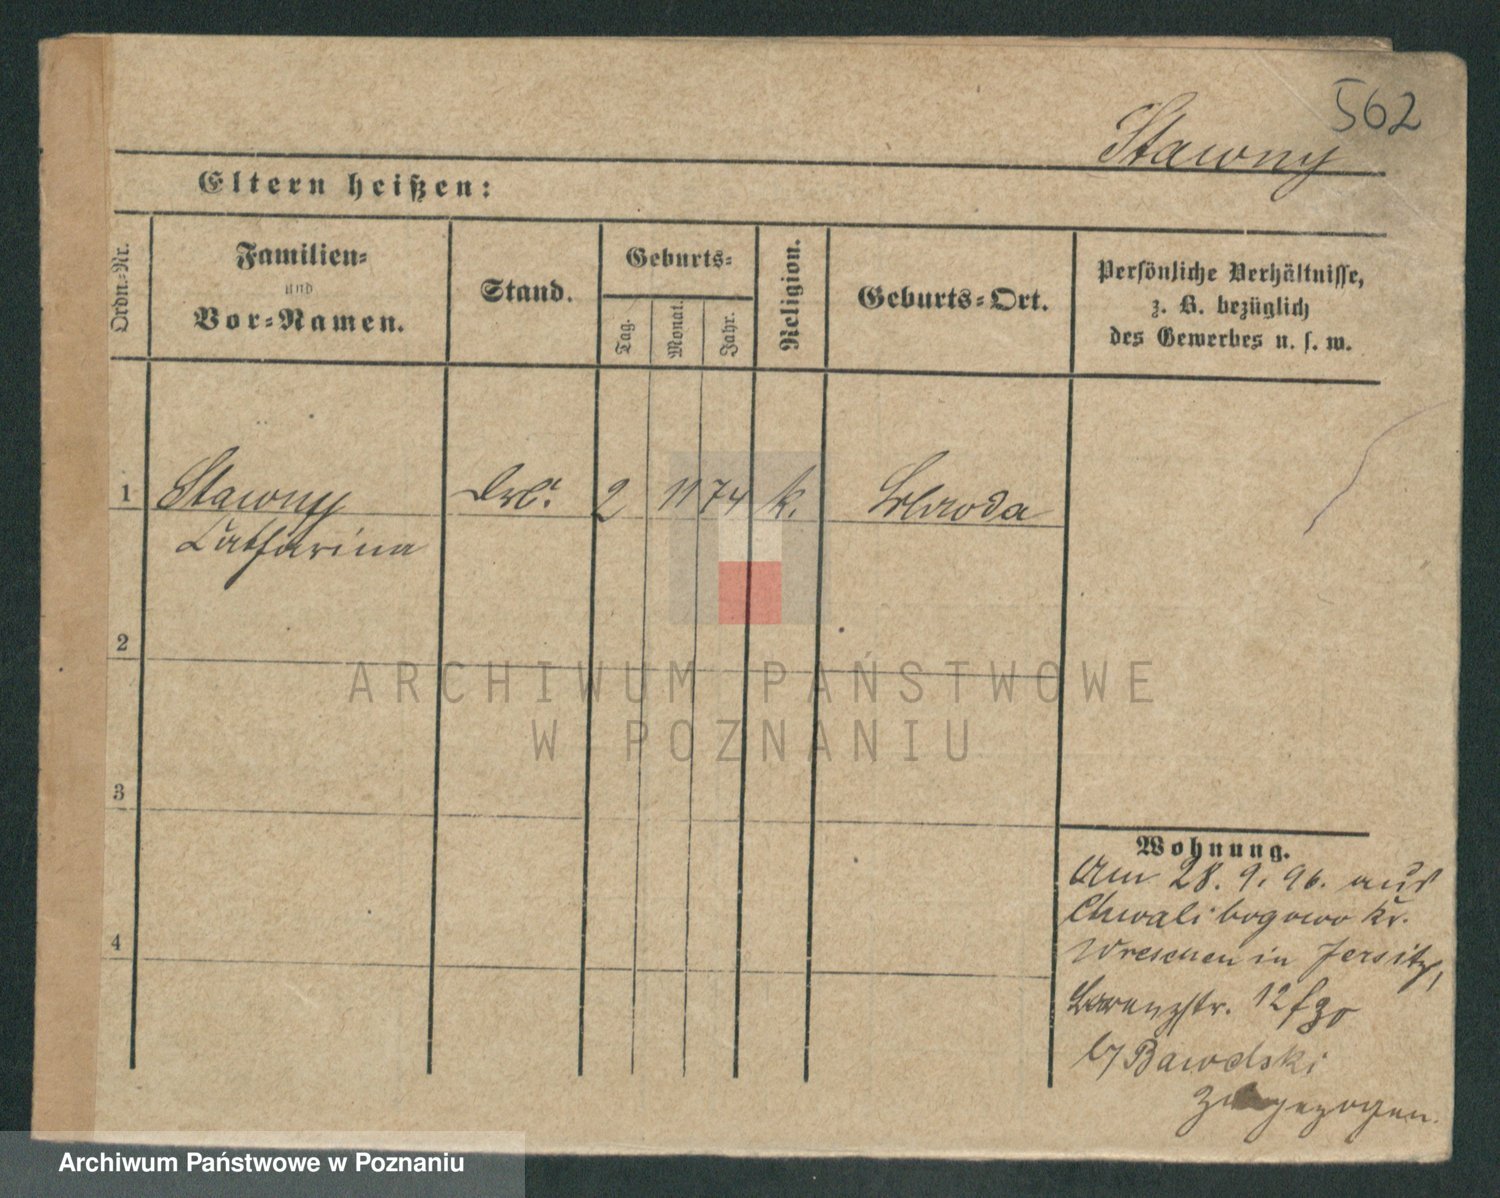 562
Stawny
Eltern heißen:
Ordn.-Nr.
Familien-
und
Vor-Namen.
Stand.
Geburts-
Tag.
Monat.
Jahr.
Religion.
Geburts-Ort.
Persönliche Verhältnisse,
z. B. bezüglich
des Gewerbes u. s. w.
1 Stawny 2 11 74 k. Schroda
Catharina
2
3
4
ARCHIWUM PAŃSTWOWE
W POZNANIU
Wohnung.
Am 28. 9. 96. aus
Chwalibogowo Kr.
Wreschen in Jersitz,
12
Bawdski
zugezogen.
Archiwum Państwowe w Poznaniu